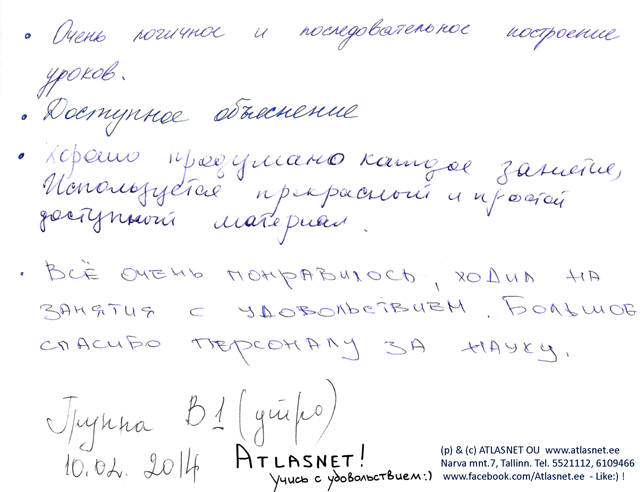 • Очень логичное и последовательное построение
уроков.
• Доступное объяснение
• Хорошо продумано каждое занятие,
Используется прекрасный и простой
доступный материал.
• ВСЁ ОЧЕНЬ ПОНРАВИЛОСЬ, ХОДИЛ НА
ЗАНЯТИЯ С УДОВОЛЬСТВИЕМ. БОЛЬШОЕ
СПАСИБО ПЕРСОНАЛУ ЗА НАУКУ.
Группа B1 (утро)
10.02. 2014
ATLASNET!
Учись с удовольствием:)
(p) & (c) ATLASNET OU www.atlasnet.ee
Narva mnt.7, Tallinn. Tel. 5521112, 6109466
www.facebook.com/Atlasnet.ee - Like:) !